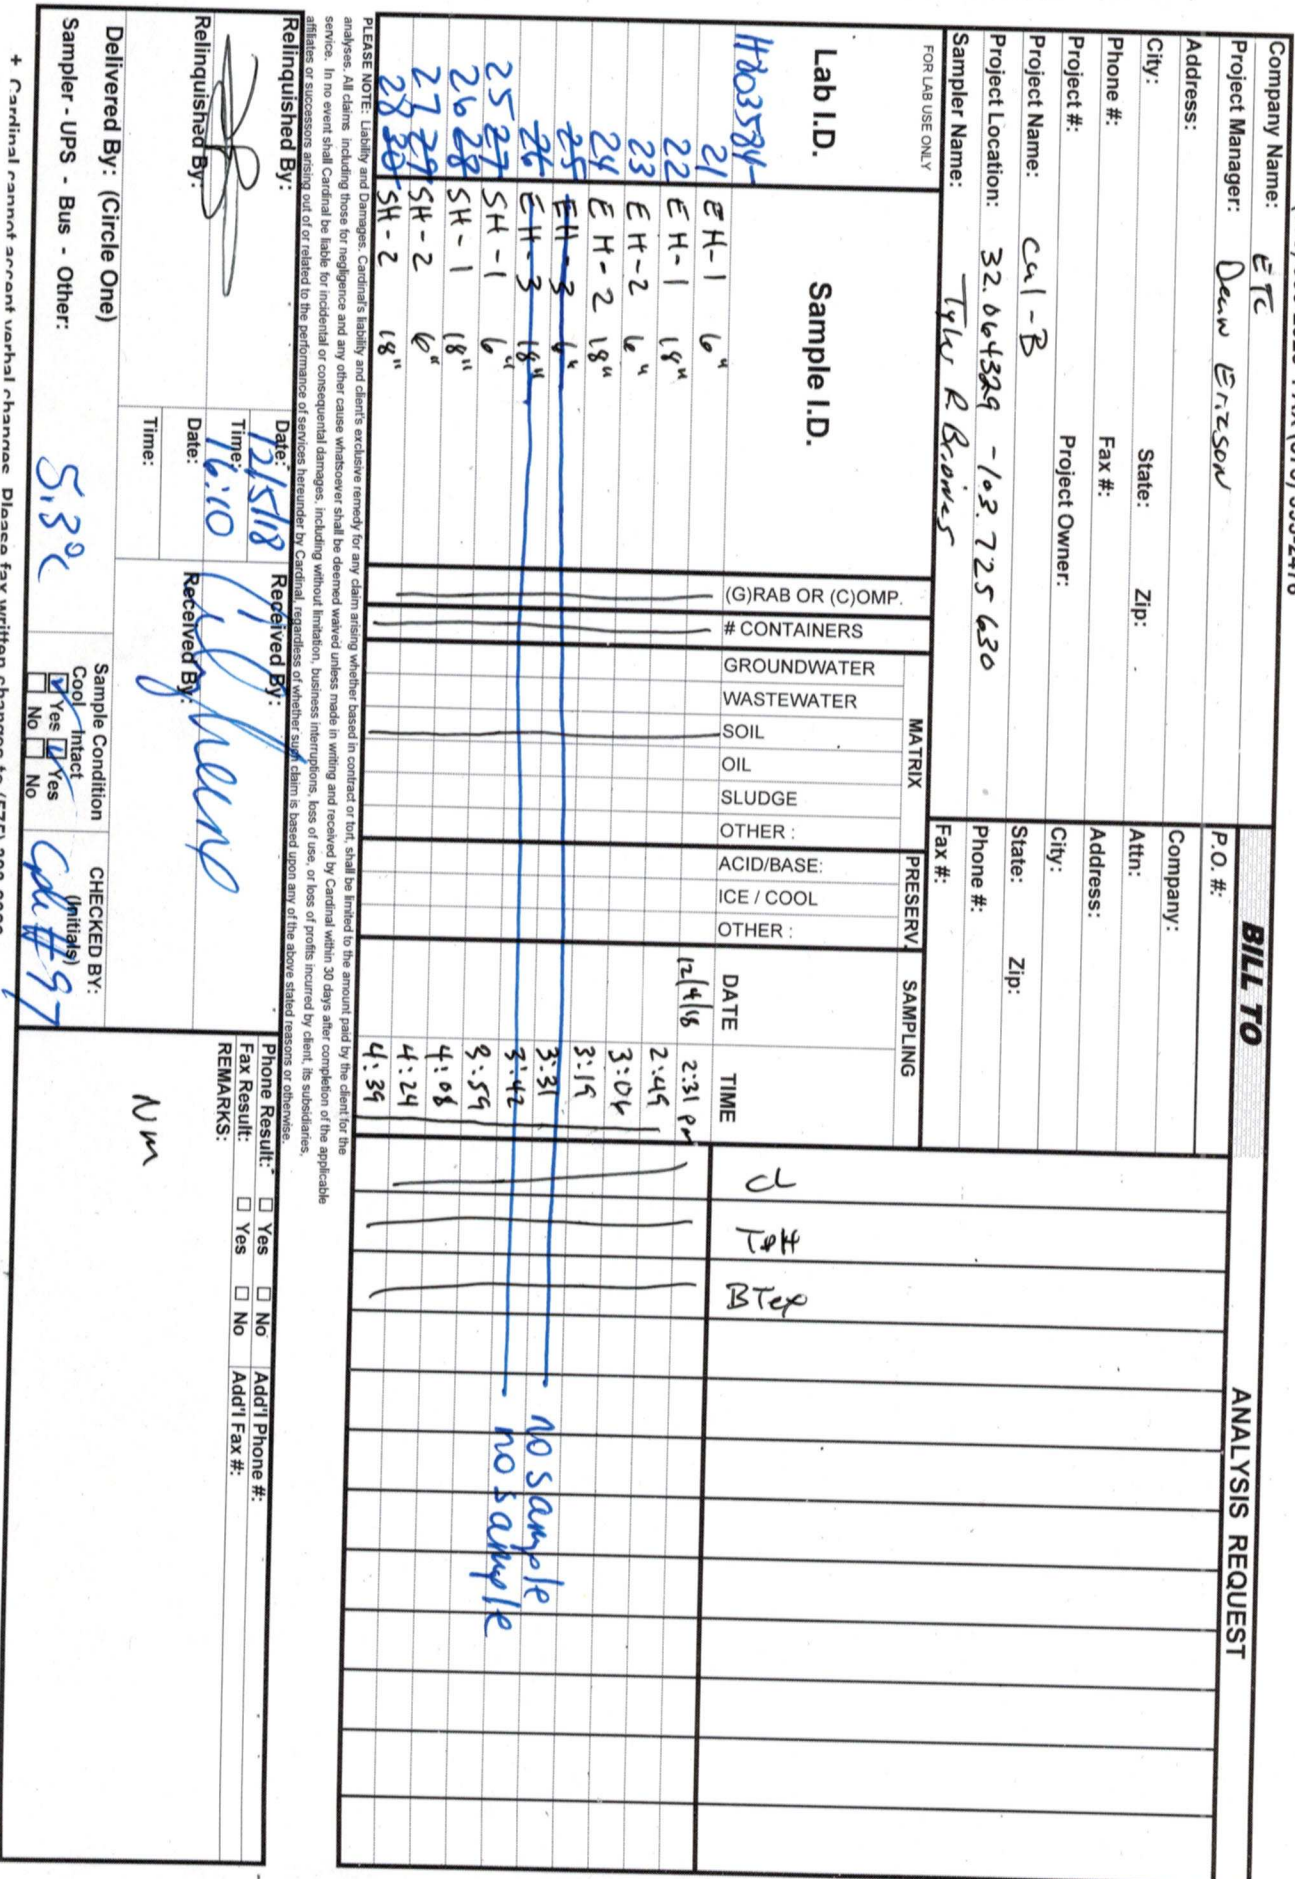 Company Name: ETC
BILL TO
ANALYSIS REQUEST
Project Manager: Dean Ericson
P.O. #:
Address:
Company:
City: State: Zip:
Attn:
Phone #: Fax #:
Address:
Project #: Project Owner:
City:
Project Name: Cal-B
State: Zip:
Project Location: 32.064329 -103.725630
Phone #:
Sampler Name: Tyler R Briones
Fax #:
FOR LAB USE ONLY
MATRIX PRESERV. SAMPLING
Lab I.D. Sample I.D. (G)RAB OR (C)OMP. # CONTAINERS GROUNDWATER WASTEWATER SOIL OIL SLUDGE OTHER : ACID/BASE: ICE / COOL OTHER : DATE TIME Cl TPH BTex
H803584
21 EH-1 6" 12/4/18 2:31 pm
22 EH-1 18" 2:49
23 EH-2 6" 3:06
24 EH-2 18" 3:19
25 EH-3 6" 3:31 no sample
26 EH-3 18" 3:42 no sample
25 27 SH-1 6" 3:59
26 28 SH-1 18" 4:08
27 29 SH-2 6" 4:24
28 30 SH-2 18" 4:39
PLEASE NOTE: Liability and Damages. Cardinal's liability and client's exclusive remedy for any claim arising whether based in contract or tort, shall be limited to the amount paid by the client for the
analyses. All claims including those for negligence and any other cause whatsoever shall be deemed waived unless made in writing and received by Cardinal within 30 days after completion of the applicable
service. In no event shall Cardinal be liable for incidental or consequental damages, including without limitation, business interruptions, loss of use, or loss of profits incurred by client, its subsidiaries,
affiliates or successors arising out of or related to the performance of services hereunder by Cardinal, regardless of whether such claim is based upon any of the above stated reasons or otherwise.
Relinquished By: Date: 12/5/18 Received By:
Time: 16:10
Phone Result: Yes No Add'l Phone #:
Fax Result: Yes No Add'l Fax #:
REMARKS:
Nm
Relinquished By: Date: Received By:
Time:
Delivered By: (Circle One)
Sampler - UPS - Bus - Other: 5.3°C
Sample Condition
Cool Intact
Yes Yes
No No
CHECKED BY:
(Initials)
#97
+ Cardinal cannot accept verbal changes. Please fax written changes to